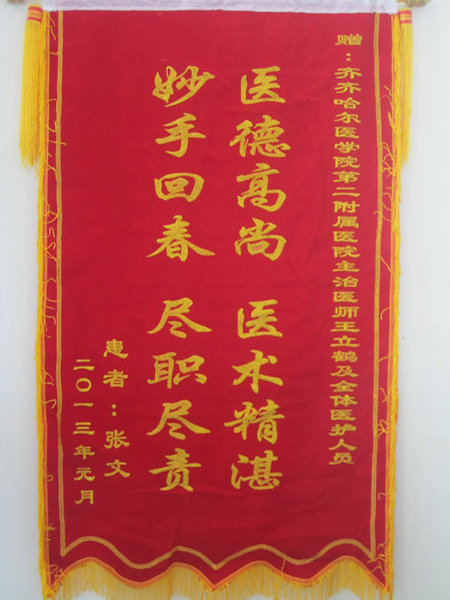 赠：齐齐哈尔医学院第二附属医院主治医师王立鹤及全体医护人员
医德高尚 医术精湛
妙手回春 尽职尽责
患者：张文
二〇一三年元月